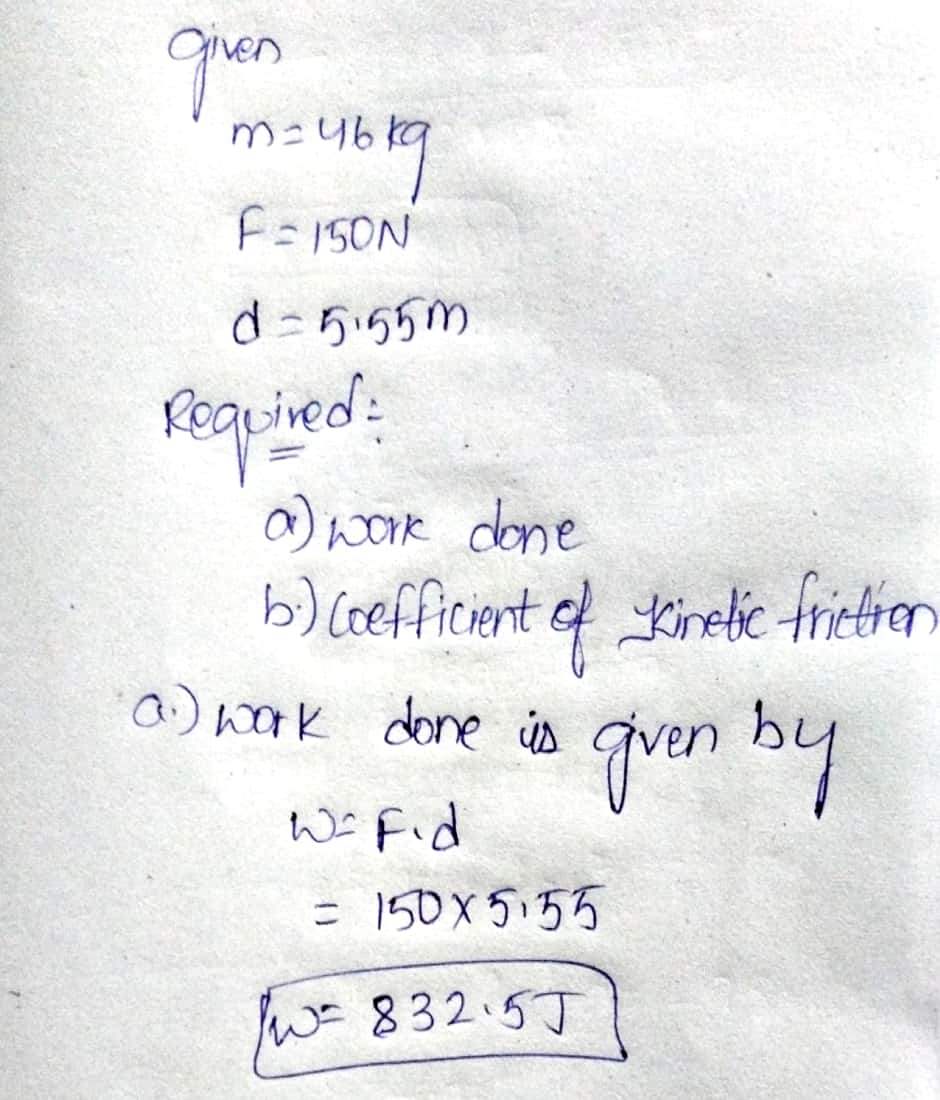 Given
m=46 kg
F=150N
d=5.55m
Required:
a) work done
b.) Coefficient of kinetic friction
a.) work done is given by
W=F.d
= 150x5.55
W= 832.5J